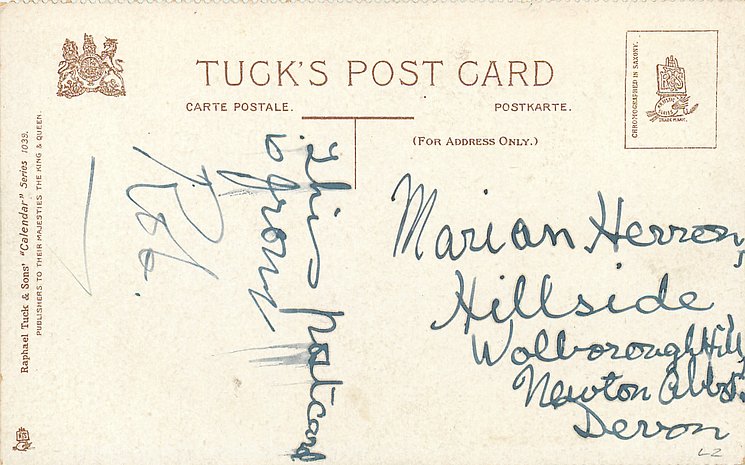 TUCK'S POST CARD
CARTE POSTALE.
POSTKARTE.
(FOR ADDRESS ONLY.)
CHROMOGRAPHED IN SAXONY.
Raphael Tuck & Sons' "Calendar" Series 1039.
PUBLISHERS TO THEIR MAJESTIES THE KING & QUEEN.
This Postcard
is from
Rob.
Marian Herron,
Hillside
Wolborough Hill,
Newton Abbot
Devon